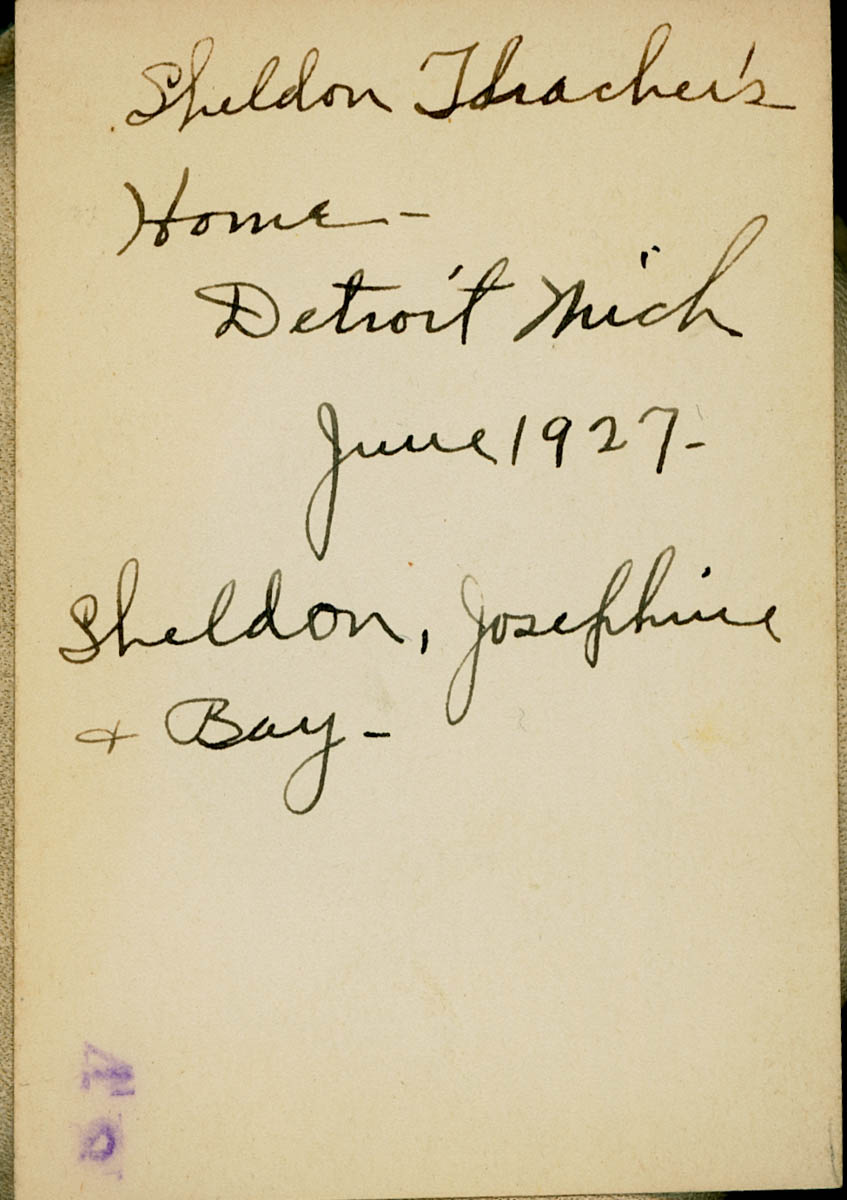 Sheldon Thracher's
Home -
Detroit Mich
June 1927 -
Sheldon, Josephine
+ Bay -